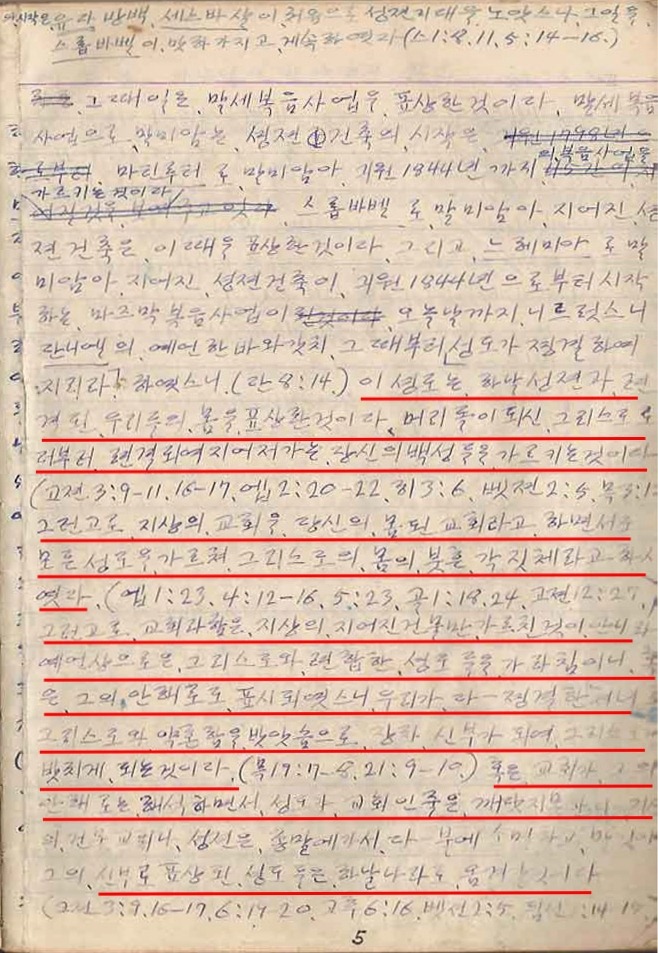 시작은 유다 방백, 세스바살이 처음으로 성전지대을 노앗스나, 그일을,
스룹바벨이, 맛하 가지고, 게속하엿다 (스1:8.11, 5:14-16.)
그때일은, 말세복음사업을, 표상한것이다, 말세복음
사업으로, 말미암는, 성전 건축의, 시작은,
의, 복음사업을
마틴루터 로, 말미암아, 기원 1844년 까지,
가르키는것이다
스룹바벨 로, 말미암아, 지어진, 성
전건축은, 이때을 표상한것이다, 그리고, 느헤미아 로 말
미암아, 지어진, 성전건축이, 기원 1844년 으로부터 시작
하는, 마즈막 복음사업이 오늘날까지, 니르럿스니
단니엘 의, 예언한바와갓치, 그때부터 성도가 정결하여
지리라, 하엿스니, (단8:14.) 이 성도는, 하날성전과, 련
결된, 우리들의, 몸을 표상한것이다, 머리돌이 되신, 그리스로
터부터, 련결되여지어저가는, 당신의 백성들을, 가르키는것이다
(고전.3:9-11, 16-17, 엡2:20-22, 히3:6, 벳전2:5, 묵3:12
그런고로, 지상의, 교회을, 당신의, 몸된 교회라고, 하면서
모든 성도을 가르쳐, 그리스도의, 몸의, 붓흔, 각 짓체라고
엿다, (엡1:23, 4:12-16, 5:23, 골1:18.24, 고전12:27,
그런고로, 교회라함은, 지상의, 지어진건물만 가르친것이, 아니라
예언상으로은, 그리스도와 련합한, 성도들을, 가라침이니,
은, 그의, 안해로도, 표시되엿스니, 우리가, 다- 정결한
그리스도와 약혼함을 밧앗슴으로, 장차, 신부가 되여,
밧치게, 되는것이다, (묵19:17-8, 21:9-10.) 혹은, 교회가, 그의
안해로는, 해석하면서, 성도가, 교회인줄은, 깨닷지
의, 건물교회나, 성전은, 종말에가서, 다- 불에
그의, 신부로 표상된, 성도들은, 하날나라로, 옴겨
3:9.16-17, 6:19-20, 고후6:16, 벳전2:5,
5